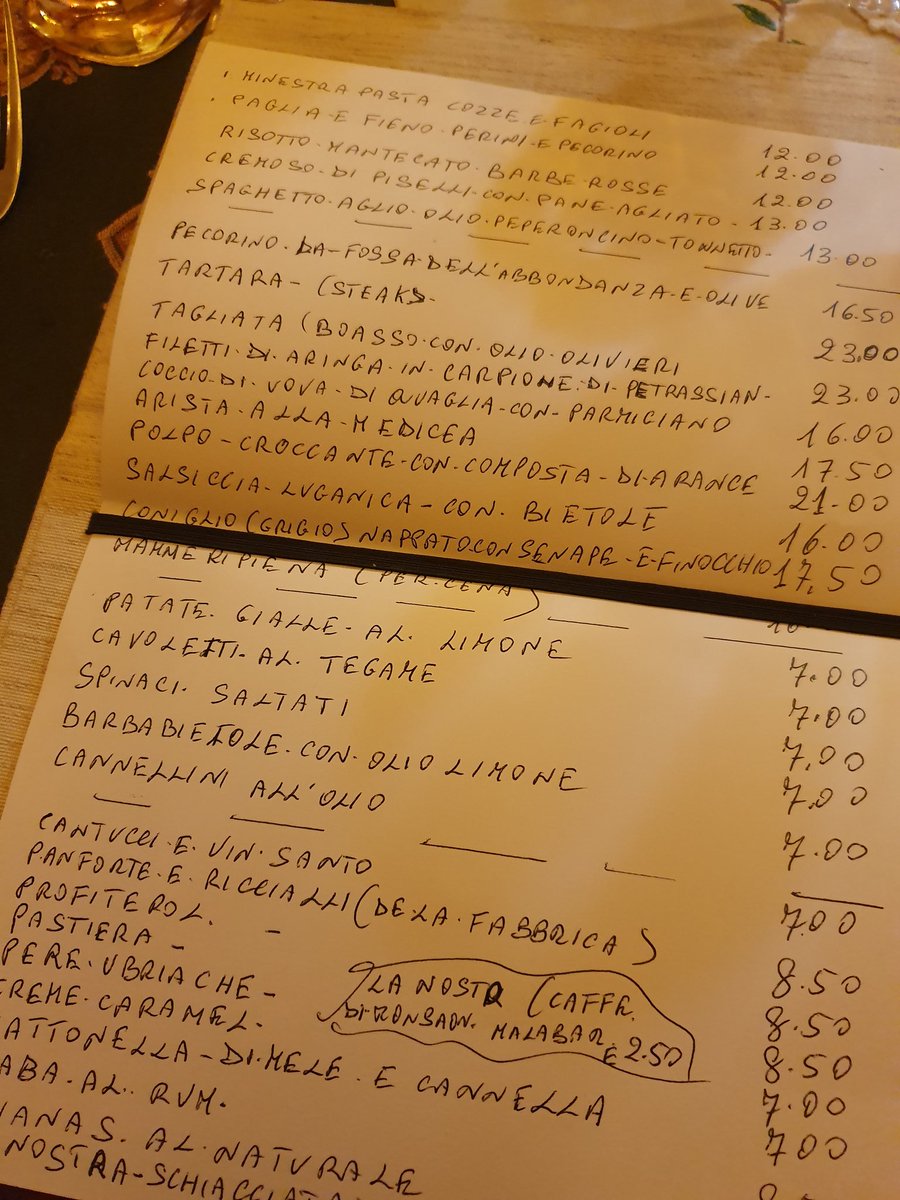 MINESTRA PASTA COZZE E FAGIOLI 12.00
PAGLIA E FIENO. PERINI E PECORINO 12.00
RISOTTO. MANTECATO. BARBE. ROSSE 12.00
CREMOSO. DI PISELLI. CON PANE. AGLIATO - 13.00
SPAGHETTO. AGLIO. OLIO. PEPERONCINO - TONNETTO - 13.00
PECORINO. DA-FOSSA. DELL'ABBONDANZA. E. OLIVE 16.50
TARTARA - (STEAKS - 23.00
TAGLIATA (BOASSO. CON. OLIO. OLIVIERI 23.00
FILETTI. DI. ARINGA. IN. CARPIONE. DI. PETRASSIAN - 16.00
COCCIO. DI. VOVA. DI QUAGLIA - CON - PARMIGIANO 17.50
ARISTA. ALLA - MEDICEA 21.00
POLPO - CROCCANTE - CON. COMPOSTA - DI. ARANCE 16.00
SALSICCIA - LUGANICA - CON. BIETOLE 17.50
CONIGLIO (GRIGIO) NAPPATO. CON SENAPE - E. FINOCCHIO
MAMME RIPIENA (PER. CENA)
PATATE. GIALLE. AL. LIMONE 7.00
CAVOLETTI. AL. TEGAME 7.00
SPINACI. SALTATI 7.00
BARBABIETOLE. CON. OLIO LIMONE 7.00
CANNELLINI ALL'OLIO 7.00
CANTUCCI. E. VIN. SANTO 7.00
PANFORTE. E. RICCIALLI (DELA. FABBRICA) 8.50
PROFITEROL. - 8.50
PASTIERA - 8.50
PERE. UBRIACHE - 7.00
CREME. CARAMEL. 7.00
LA NOSTQ (CAFFE.
MALABAR
E 2.50
ATTONELLA - DI. MELE. E CANNELLA
ABA. AL. RUM.
NANAS. AL. NATURALE
NOSTRA - SCHIACCIATA